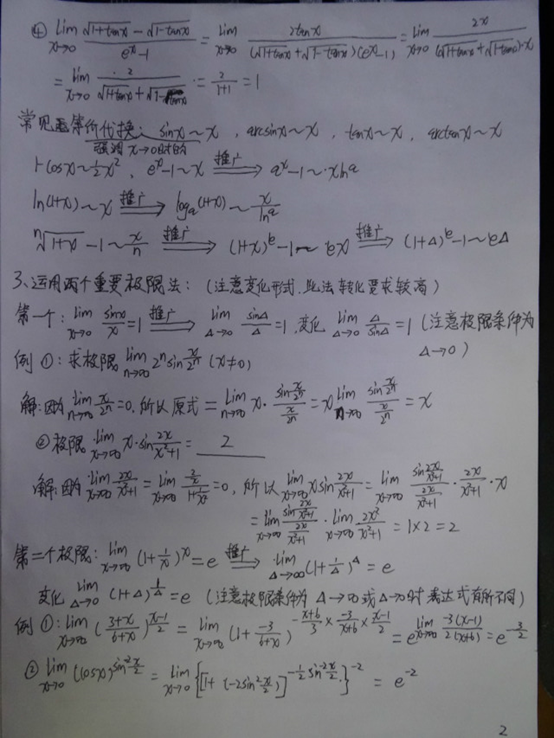 ④ lim x→0 (√(1+tanx) - √(1-tanx))/(e^x-1) = lim x→0 2tanx/((√(1+tanx)+√(1-tanx))(e^x-1)) = lim x→0 2x/((√(1+tanx)+√(1-tanx))·x)
= lim x→0 2/(√(1+tanx)+√(1-tanx)) = 2/(1+1) = 1
常见等价代换: sinx~x, arcsinx~x, tanx~x, arctanx~x
强调x→0时的
1-cosx~½x², e^x-1~x 推广⟹ a^x-1~xlna
ln(1+x)~x 推广⟹ log_a(1+x)~x/lna
ⁿ√(1+x) - 1~x/n 推广⟹ (1+x)^e-1~ex 推广⟹ (1+Δ)^e-1~eΔ
3、运用两个重要极限法: (注意变化形式,此法转化要求较高)
第一个: lim x→0 sinx/x = 1 推广⟹ lim Δ→0 sinΔ/Δ = 1, 变化 lim Δ→0 Δ/sinΔ = 1 (注意极限条件为
Δ→0)
例①: 求极限 lim n→∞ 2ⁿ sin x/2ⁿ (x≠0)
解: 因为 lim n→∞ x/2ⁿ = 0, 所以原式 = lim n→∞ x· (sin x/2ⁿ)/(x/2ⁿ) = x lim n→∞ (sin x/2ⁿ)/(x/2ⁿ) = x
②极限 lim x→∞ x·sin 2x/(x²+1) = 2
解: 因为 lim x→∞ 2x/(x²+1) = lim x→∞ (2/x)/(1+1/x²) = 0, 所以 lim x→∞ x sin 2x/(x²+1) = lim x→∞ (sin 2x/(x²+1))/(2x/(x²+1)) · 2x/(x²+1) · x
= lim x→∞ (sin 2x/(x²+1))/(2x/(x²+1)) · lim x→∞ 2x²/(x²+1) = 1×2 = 2
第二个极限: lim x→∞ (1+1/x)^x = e 推广⟹ lim Δ→∞ (1+1/Δ)^Δ = e
变化 lim Δ→0 (1+Δ)^(1/Δ) = e (注意极限条件为Δ→∞或Δ→0时表达式有所不同)
例①: lim x→∞ ((3+x)/(6+x))^((x-1)/2) = lim x→∞ (1+ -3/(6+x))^(-(x+6)/3 × -3/(x+6) × (x-1)/2) = e^(lim x→∞ -3(x-1)/2(x+6)) = e^(-3/2)
② lim x→0 (cosx)^(sin⁻² x/2) = lim x→0 {[1+(-2sin² x/2)]^(-½ sin⁻² x/2)}^-2 = e^-2
2